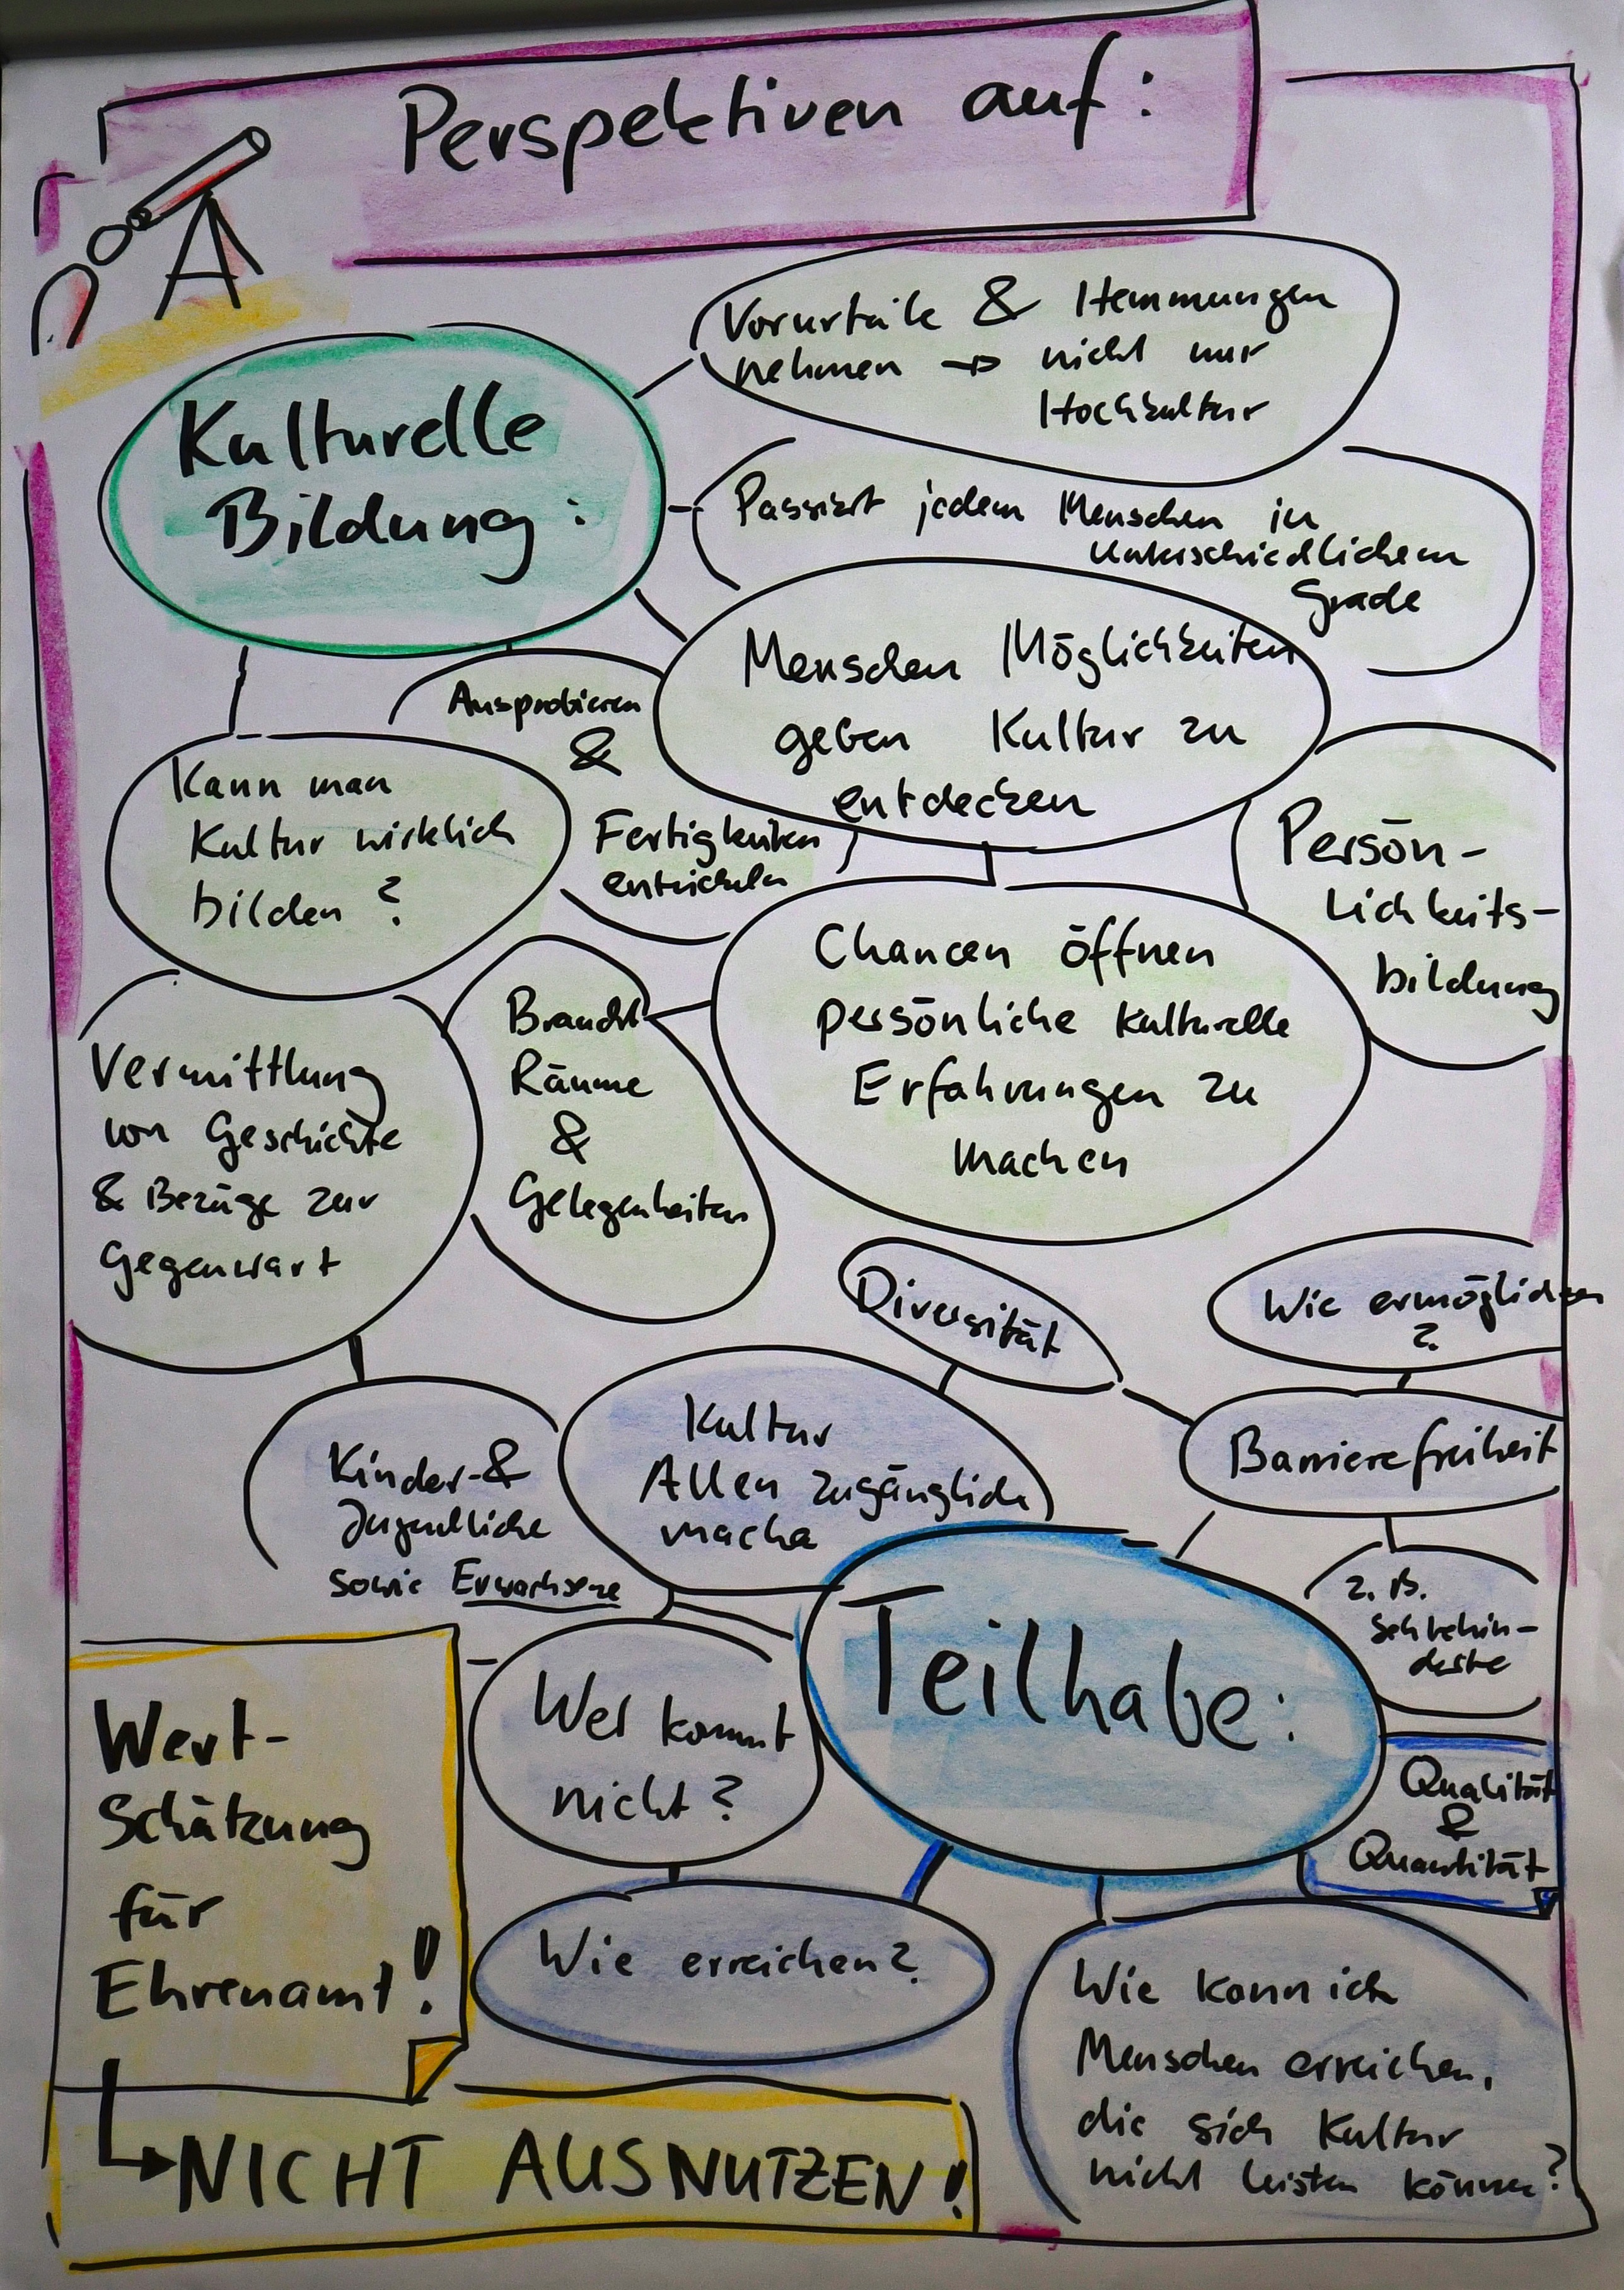 Perspektiven auf:
Kulturelle
Bildung:
Vorurteile & Hemmungen
nehmen → nicht nur
Hochkultur
Passiert jedem Menschen in
unterschiedlichem
Grade
Menschen Möglichkeiten
geben Kultur zu
entdecken
Ausprobieren
&
Fertigkeiten
entwickeln
Kann man
Kultur wirklich
bilden?
Persön-
lichkeits-
bildung
Chancen öffnen
persönliche kulturelle
Erfahrungen zu
machen
Braucht
Räume
&
Gelegenheiten
Vermittlung
von Geschichte
& Bezüge zur
Gegenwart
Diversität
Wie ermöglichen
?
Barrierefreiheit
Kinder-&
Jugendliche
sowie Erwachsene
Kultur
Allen zugänglich
machen
z.B.
Sehbehin-
derte
Teilhabe:
Wer kommt
nicht?
Qualität
&
Quantität
Wert-
Schätzung
für
Ehrenamt!!
Wie erreichen?
Wie kann ich
Menschen erreichen,
die sich Kultur
nicht leisten können?
→ NICHT AUSNUTZEN!